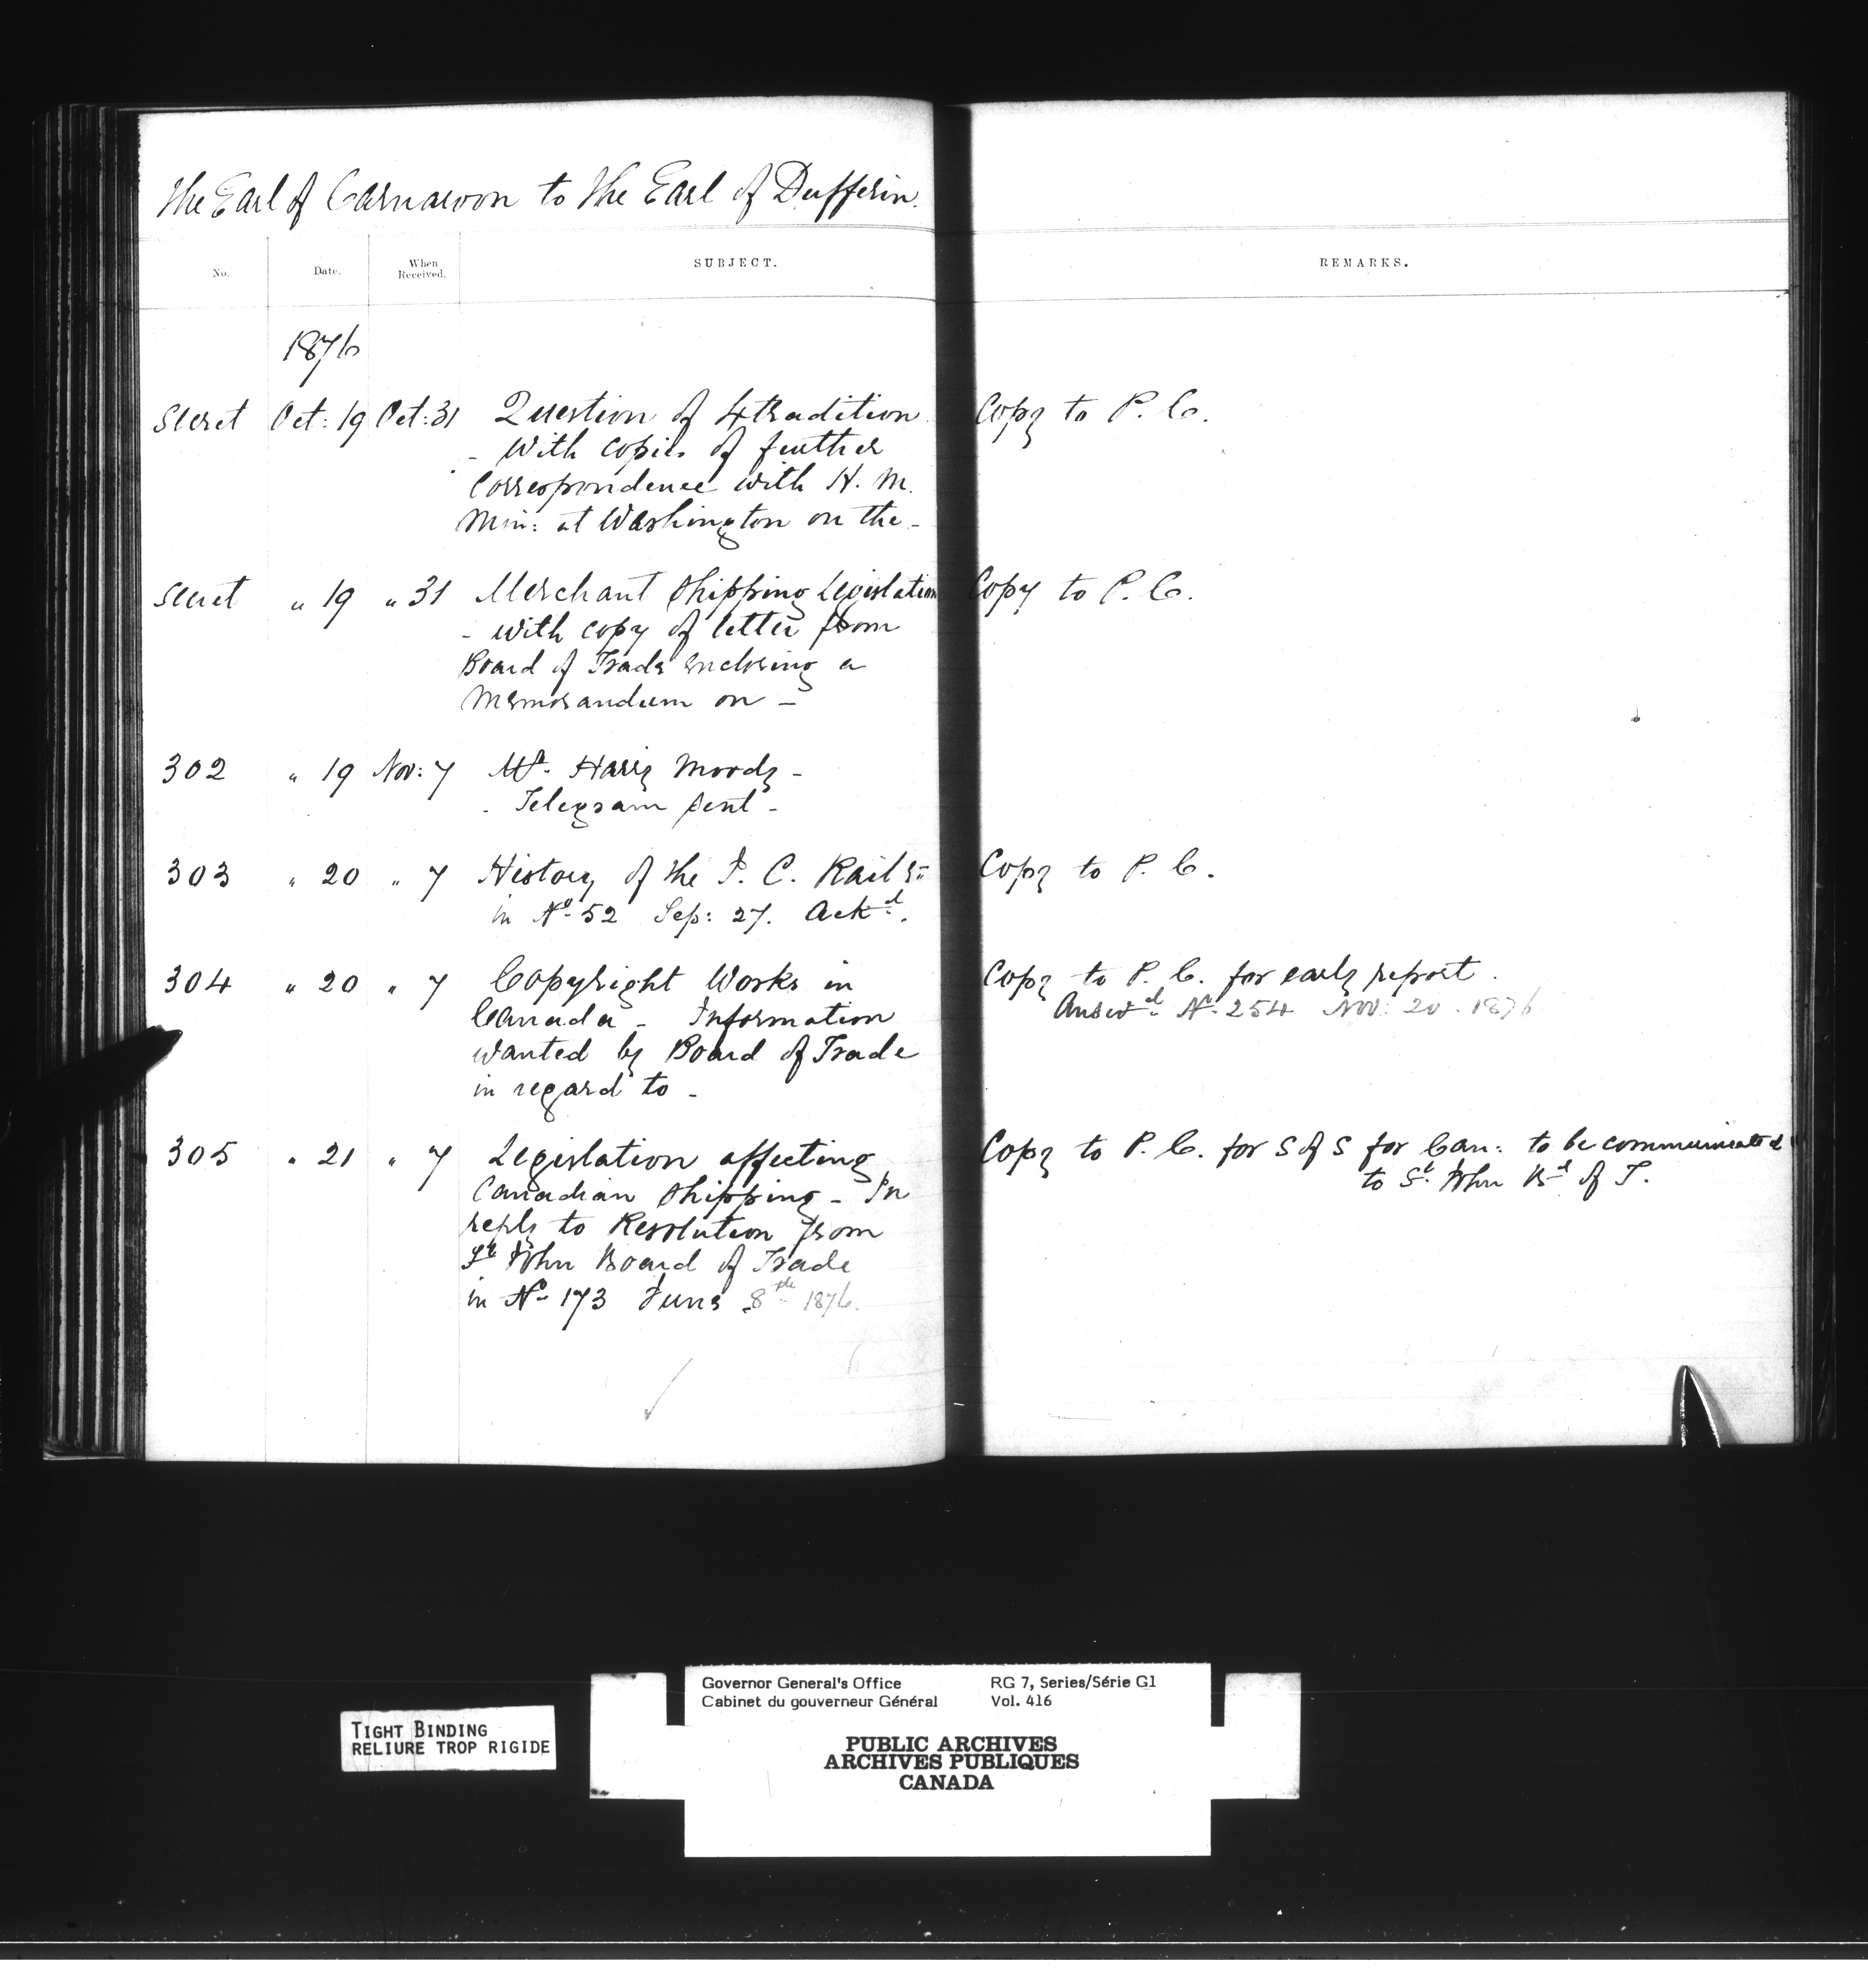 The Earl of Carnarvon to The Earl of Dufferin.
No. Date. When Received. SUBJECT. REMARKS.
1876
Secret Oct: 19 Oct: 31 Question of Extradition Copy to P. C.
- With copies of further
Correspondence with H. M.
Min: at Washington on the -
Secret " 19 " 31 Merchant Shipping Legislation Copy to P. C.
- with copy of letter from
Board of Trade enclosing a
Memorandum on -
302 " 19 Nov: 7 Mr. Harry Moody -
- Telegram sent -
303 " 20 " 7 History of the I. C. Rail Copy to P. C.
in No. 52 Sep: 27. Ackd.
304 " 20 " 7 Copyright Works in Copy to P. C. for early report.
Canada - Information Answd. No. 254 Nov: 20. 1876
wanted by Board of Trade
in regard to -
305 " 21 " 7 Legislation affecting Copy to P. C. for S of S for Can: to be communicated
Canadian Shipping - In to St. John Bd. of T.
reply to Resolution from
St. John Board of Trade
in No. 173 June 8th 1876.
TIGHT BINDING
RELIURE TROP RIGIDE
Governor General's Office RG 7, Series/Série G1
Cabinet du gouverneur Général Vol. 416
PUBLIC ARCHIVES
ARCHIVES PUBLIQUES
CANADA